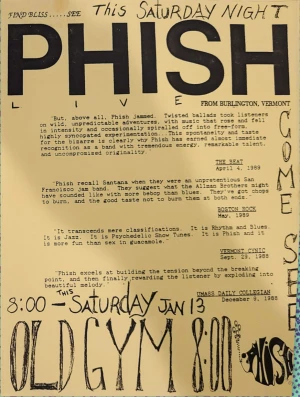 FIND BLISS.....SEE This SATURDAY NIGHT
PHISH
LIVE
FROM BURLINGTON, VERMONT
COME SEE
"But, above all, Phish jammed. Twisted ballads took listeners
on wild, unpredictable adventures, with music that rose and fell
in intensity and occasionally spiralled off into free-form,
highly syncopated experimentation. This spontaneity and taste
for the bizarre is clearly why Phish has earned almost immediate
recognition as a band with tremendous energy, remarkable talent,
and uncompromised originality.
THE BEAT
April 4, 1989
Phish recall Santana when they were an unpretentious San
Francisco jam band. They suggest what the Allman Brothers might
have sounded like with more bebop than blues. They've got chops
to burn, and the good taste not to burn them at both ends."
BOSTON ROCK
May, 1989
"It transcends mere classifications. It is Rhythm and Blues.
It is Jazz. It is Psychedelic Show Tunes. It is Phish and it
is more fun than sex in guacamole."
VERMONT CYNIC
Sept. 29, 1988
"Phish excels at building the tension beyond the breaking
point, and then finally rewarding the listener by exploding into
beautiful melody."
UMASS DAILY COLLEGIAN
December 8, 1988
8:00 - THIS SATURDAY JAN 13
OLD GYM 8:00
PHISH